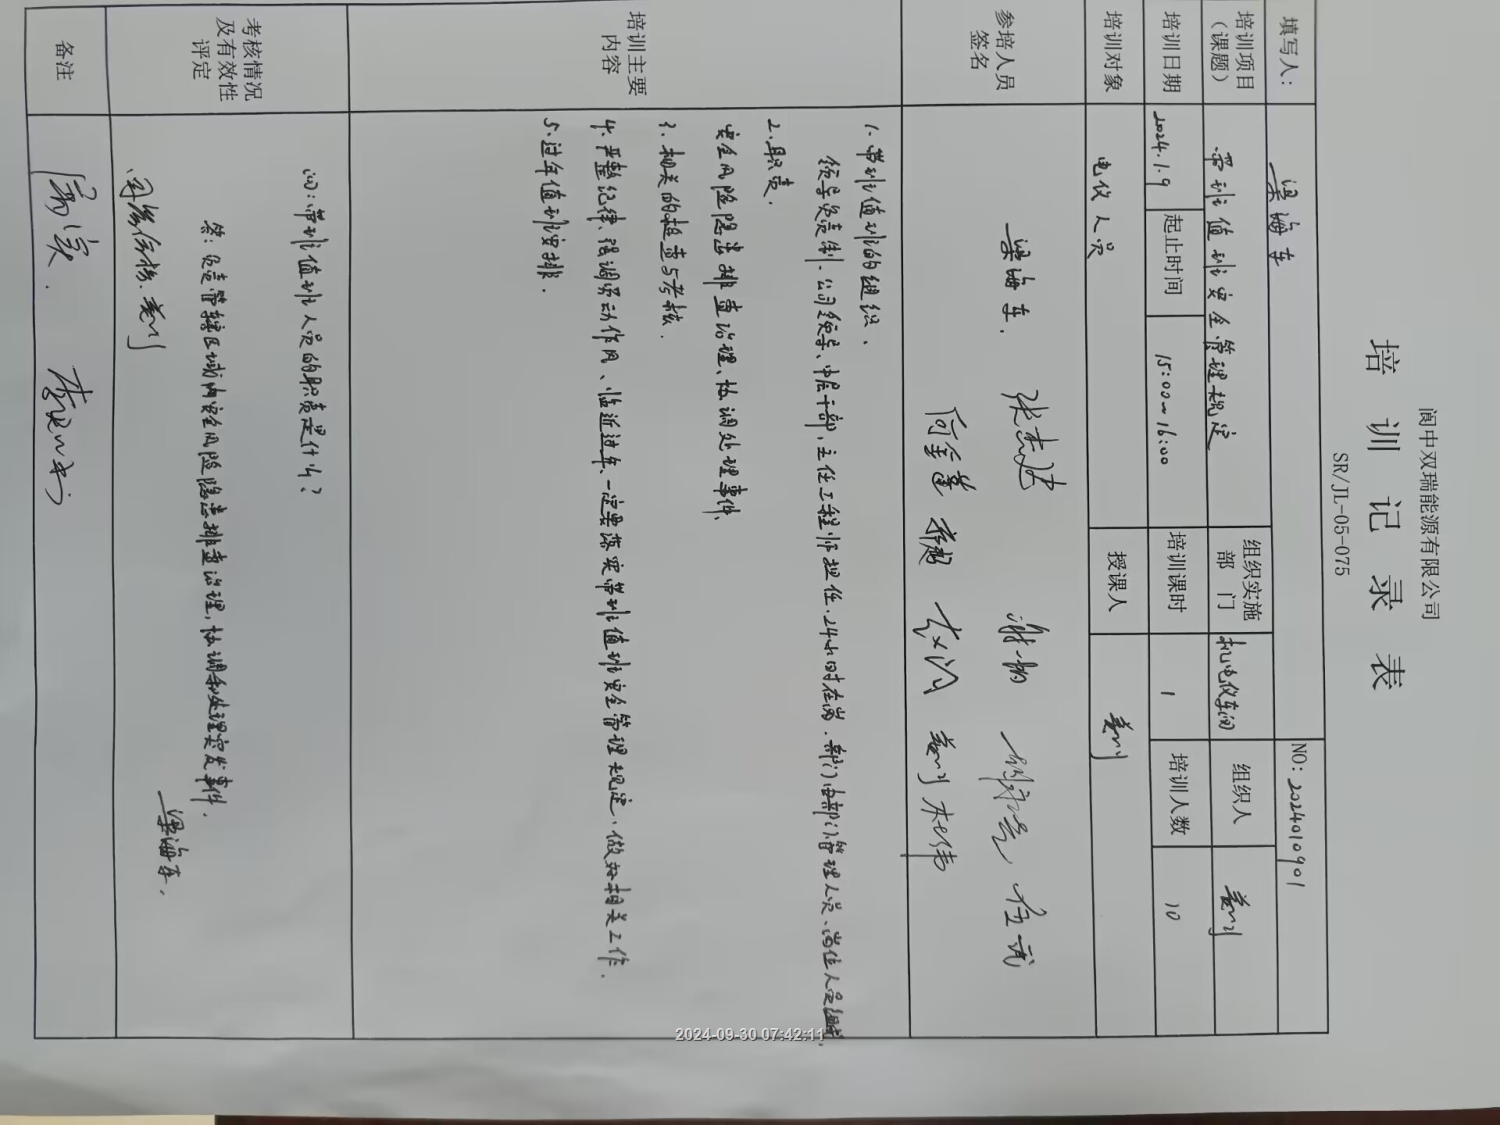 阆中双瑞能源有限公司
培训记录表
SR/JL-05-075
填写人: 梁海车 NO: 2024010901
培训项目（课题） 带班值班安全管理规定 组织实施部门 机电仪车间 组织人
培训日期 2024.1.9 起止时间 15:00~16:00 培训课时 1 培训人数 10
培训对象 电仪人员 授课人
参培人员签名 梁海车.
培训主要内容
1. 带班值班的组织.
领导负责制. 公司领导、中层干部, 主任工程师担任. 24小时在岗. 部门由部门管理人员、岗位人员组成.
2. 职责.
安全风险隐患排查治理、协调处理事件.
3. 相关的检查与考核.
4. 严整纪律、强调劳动作风、临近过年、一定要落实带班值班安全管理规定, 做好相关工作.
5. 过年值班安排.
考核情况及有效性评定
问: 带班值班人员的职责是什么?
答: 负责管辖区域内安全风险隐患排查治理, 协调和处理突发事件.
梁海车.
备注
2024-09-30 07:42:11